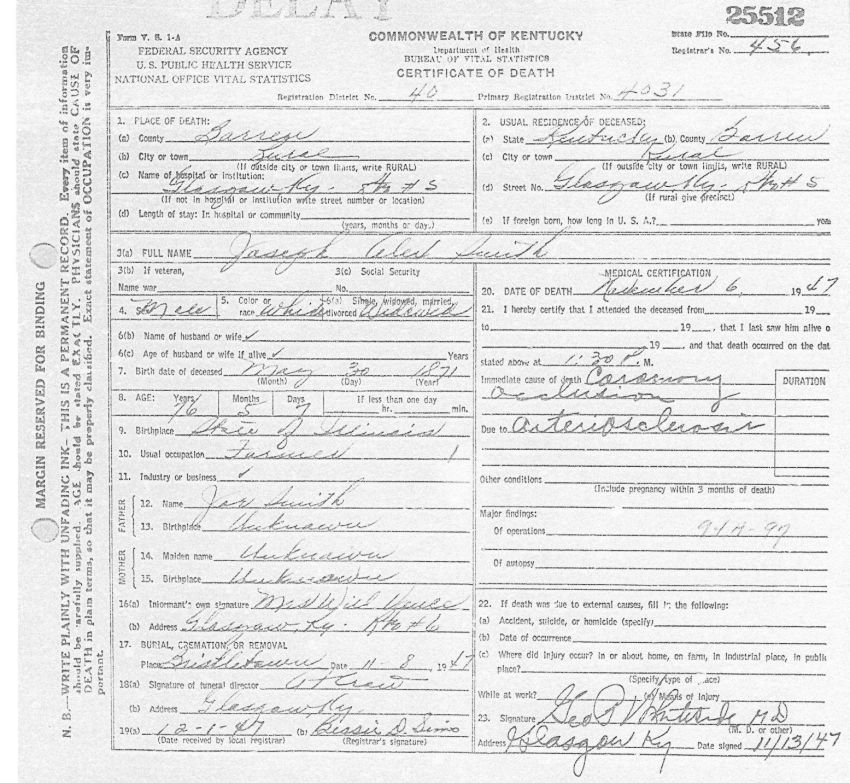 DELAY
25512
Form V. S. 1-A
FEDERAL SECURITY AGENCY
U. S. PUBLIC HEALTH SERVICE
NATIONAL OFFICE VITAL STATISTICS
COMMONWEALTH OF KENTUCKY
Department of Health
BUREAU OF VITAL STATISTICS
CERTIFICATE OF DEATH
State File No.
Registrar's No. 456
Registration District No. 40 Primary Registration District No. 4031
MARGIN RESERVED FOR BINDING
N. B.—WRITE PLAINLY WITH UNFADING INK—THIS IS A PERMANENT RECORD. Every item of information
should be carefully supplied. AGE should be stated EXACTLY. PHYSICIANS should state CAUSE OF
DEATH in plain terms, so that it may be properly classified. Exact statement of OCCUPATION is very im-
portant.
1. PLACE OF DEATH:
(a) County Barren
(b) City or town Rural
(If outside city or town limits, write RURAL)
(c) Name of hospital or institution:
Glasgow Ky. Rt # 5
(If not in hospital or institution write street number or location)
(d) Length of stay: In hospital or community
(years, months or days)
2. USUAL RESIDENCE OF DECEASED:
(a) State Kentucky (b) County Barren
(c) City or town Rural
(If outside city or town limits, write RURAL)
(d) Street No. Glasgow Ky. Rt # 5
(If rural give precinct)
(e) If foreign born, how long in U. S. A.? years
3(a) FULL NAME Joseph Smith
3(b) If veteran, 3(c) Social Security
Name war No.
4. Sex Male 5. Color or race White 6(a) Single, widowed, married, divorced Widowed
6(b) Name of husband or wife ✓
6(c) Age of husband or wife if alive ✓ Years
7. Birth date of deceased May 30 1871
(Month) (Day) (Year)
8. AGE: Years Months Days If less than one day
76 5 7 hr. min.
9. Birthplace State of Illinois
10. Usual occupation Farmer
11. Industry or business ✓
FATHER
12. Name Joe Smith
13. Birthplace Unknown
MOTHER
14. Maiden name Unknown
15. Birthplace Unknown
16(a) Informant's own signature Mrs Will
(b) Address Glasgow Ky. # 6
17. BURIAL, CREMATION, OR REMOVAL
Place Date 11 - 8, 1947
18(a) Signature of funeral director
(b) Address Glasgow Ky.
19(a) 12-1-47 (b) Bessie D. Sims
(Date received by local registrar) (Registrar's signature)
MEDICAL CERTIFICATION
20. DATE OF DEATH November 6, 1947
21. I hereby certify that I attended the deceased from 19
to 19 , that I last saw him alive o
19 , and that death occurred on the dat
stated above at 1:30 P. M.
Immediate cause of death Coronary
occlusion
DURATION
Due to Arteriosclerosis
Other conditions
(Include pregnancy within 3 months of death)
Major findings:
Of operations 94A-97
Of autopsy
22. If death was due to external causes, fill in the following:
(a) Accident, suicide, or homicide (specify)
(b) Date of occurrence
(c) Where did injury occur? In or about home, on farm, in industrial place, in public
place?
(Specify type of place)
While at work? (e) Means of injury
23. Signature Geo P Whiteside MD
(M. D. or other)
Address Glasgow Ky Date signed 11/13/47